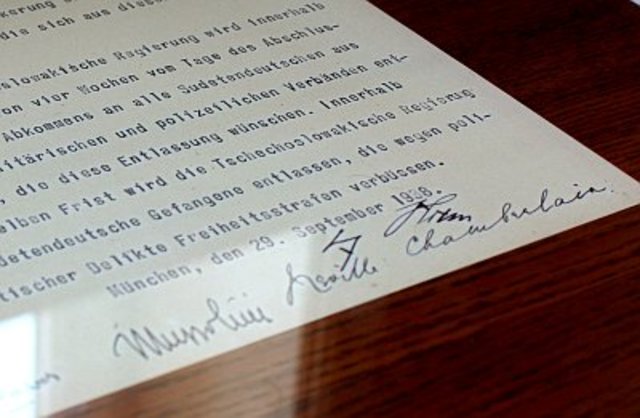 die sich aus diese
oslowakische Regierung wird innerhalb
on vier Wochen vom Tage des Abschlus-
Abkommens an alle Sudetendeutschen aus
itärischen und polizeilichen Verbänden ent-
, die diese Entlassung wünschen. Innerhalb
elben Frist wird die Tschechoslowakische Regierung
detendeutsche Gefangene entlassen, die wegen poli-
tischer Delikte Freiheitsstrafen verbüssen.
München, den 29. September 1938.
Mussolini Neville Chamberlain